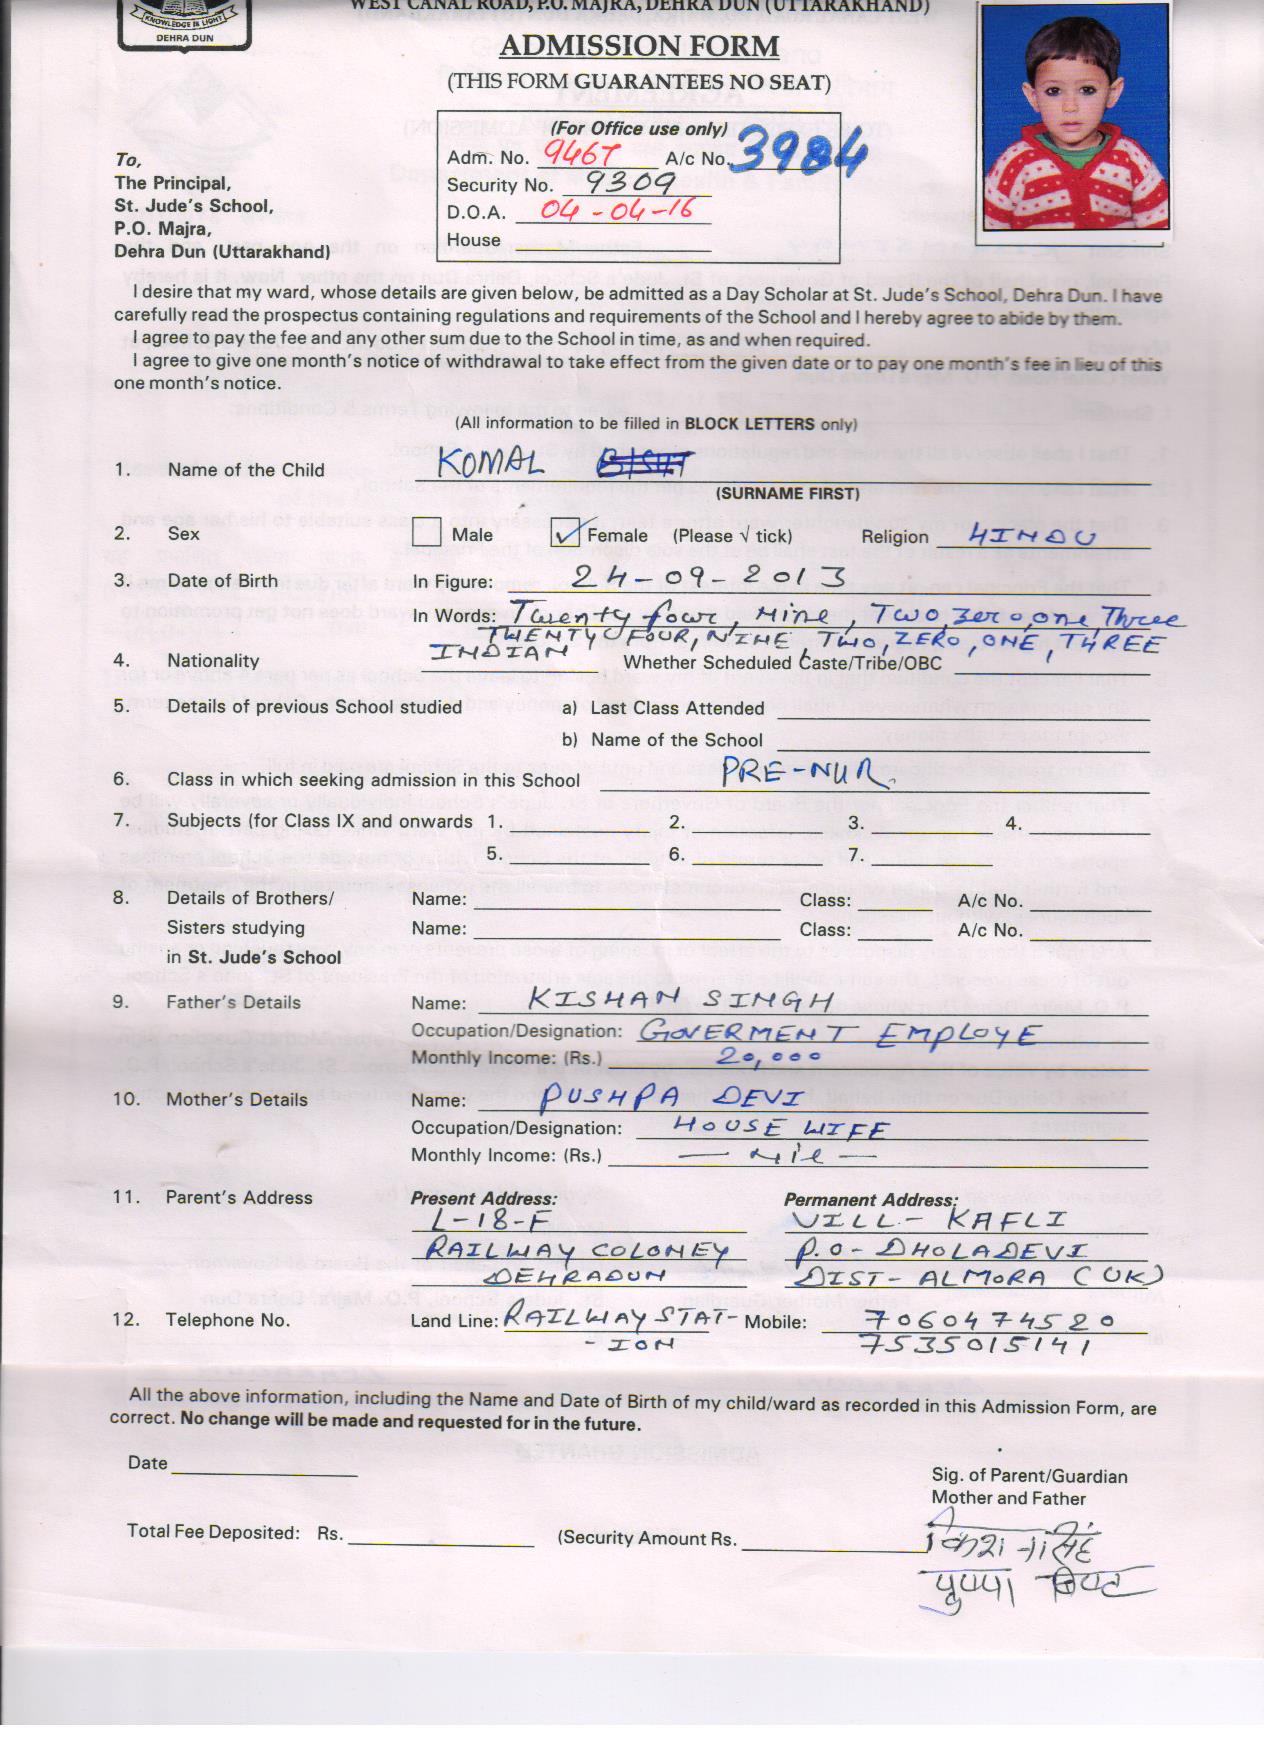 KNOWLEDGE IS LIGHT
DEHRA DUN
WEST CANAL ROAD, P.O. MAJRA, DEHRA DUN (UTTARAKHAND)
ADMISSION FORM
(THIS FORM GUARANTEES NO SEAT)
(For Office use only)
Adm. No. 9467 A/c No. 3984
Security No. 9309
D.O.A. 04-04-16
House
To,
The Principal,
St. Jude's School,
P.O. Majra,
Dehra Dun (Uttarakhand)
I desire that my ward, whose details are given below, be admitted as a Day Scholar at St. Jude's School, Dehra Dun. I have
carefully read the prospectus containing regulations and requirements of the School and I hereby agree to abide by them.
I agree to pay the fee and any other sum due to the School in time, as and when required.
I agree to give one month's notice of withdrawal to take effect from the given date or to pay one month's fee in lieu of this
one month's notice.
(All information to be filled in BLOCK LETTERS only)
1. Name of the Child KOMAL
(SURNAME FIRST)
2. Sex Male ✓ Female (Please √ tick) Religion HINDU
3. Date of Birth In Figure: 24-09-2013
In Words: Twenty four, Nine, Two, zero, one Three
TWENTY FOUR, NINE, TWO, ZERO, ONE, THREE
4. Nationality INDIAN Whether Scheduled Caste/Tribe/OBC
5. Details of previous School studied a) Last Class Attended
b) Name of the School
6. Class in which seeking admission in this School PRE-NUR.
7. Subjects (for Class IX and onwards 1. 2. 3. 4.
5. 6. 7.
8. Details of Brothers/ Name: Class: A/c No.
Sisters studying Name: Class: A/c No.
in St. Jude's School
9. Father's Details Name: KISHAN SINGH
Occupation/Designation: GOVERMENT EMPLOYE
Monthly Income: (Rs.) 20,000
10. Mother's Details Name: PUSHPA DEVI
Occupation/Designation: HOUSE WIFE
Monthly Income: (Rs.) — Nil —
11. Parent's Address Present Address: Permanent Address:
L-18-F VILL- KAFLI
RAILWAY COLONEY P.O- DHOLADEVI
DEHRADUN DIST- ALMORA (UK)
12. Telephone No. Land Line: RAILWAY STAT- Mobile: 7060474520
-ION 7535015141
All the above information, including the Name and Date of Birth of my child/ward as recorded in this Admission Form, are
correct. No change will be made and requested for in the future.
Date
Sig. of Parent/Guardian
Mother and Father
Total Fee Deposited: Rs. (Security Amount Rs.
किशन सिंह
पुष्पा